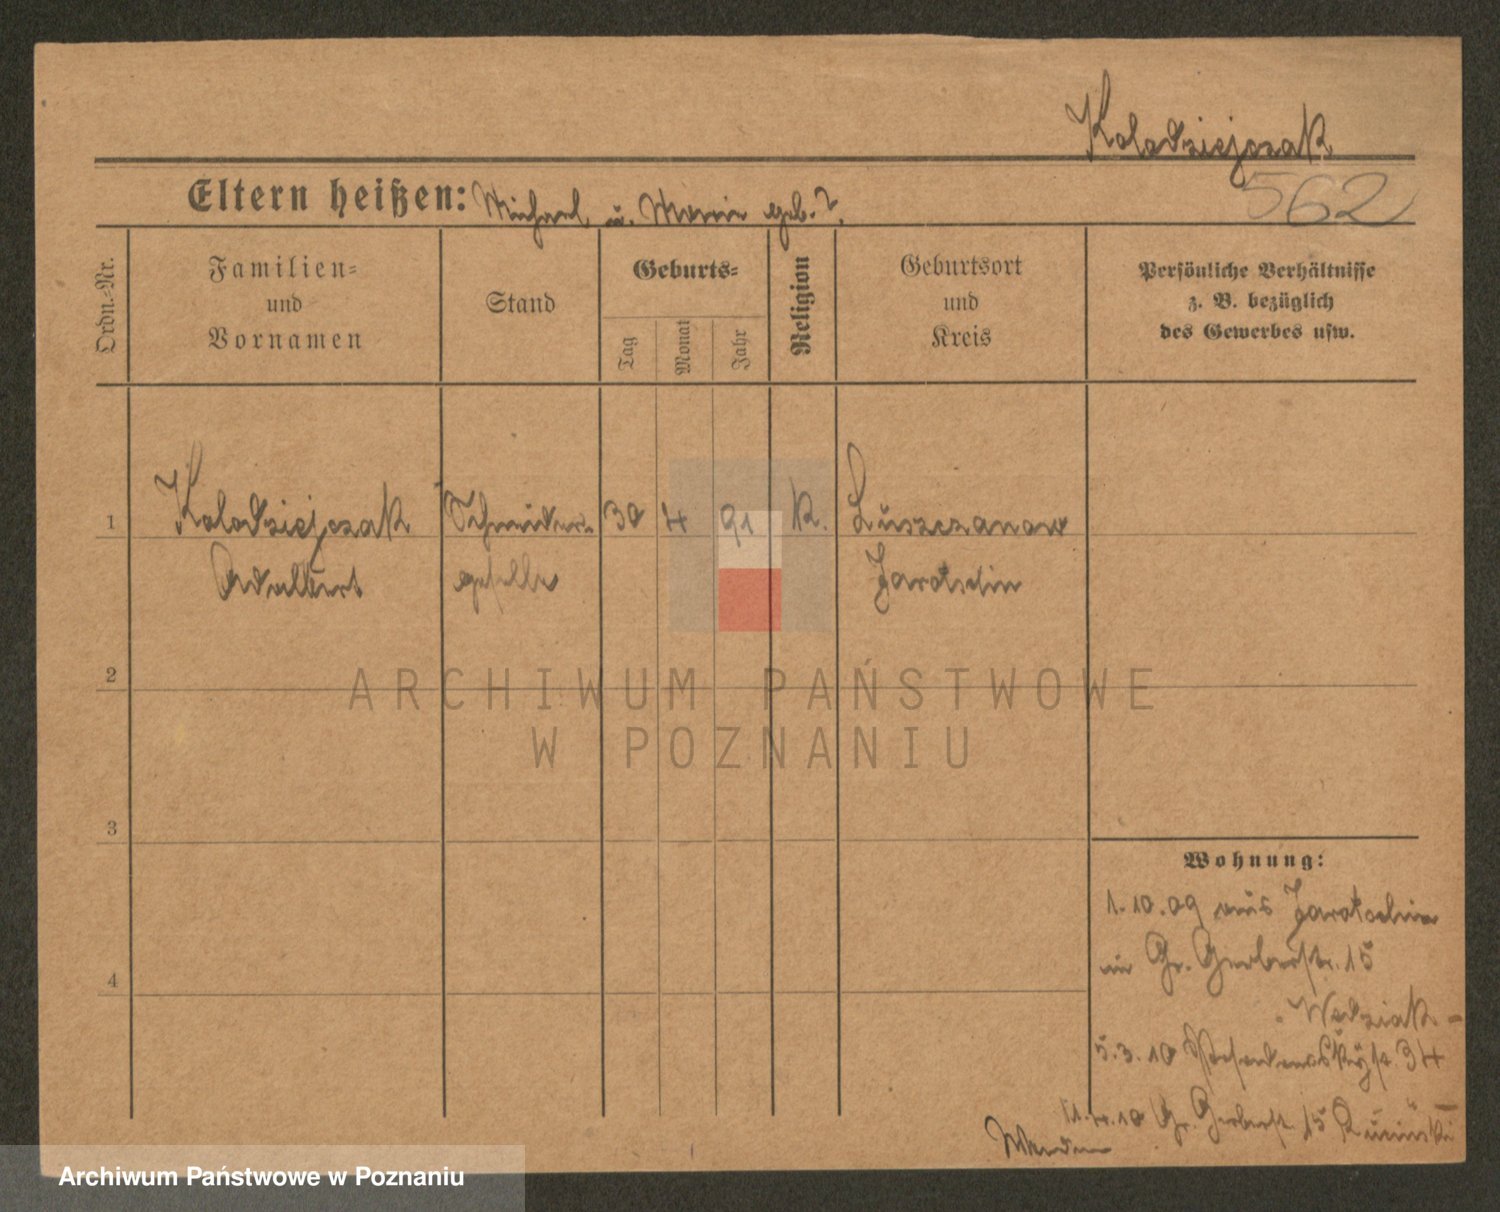 Kolodziejczak
562
Eltern heißen: Michael u. Marie geb. ?.
Ordn.-Nr.
Familien-
und
Vornamen
Stand
Geburts-
Tag
Monat
Jahr
Religion
Geburtsort
und
Kreis
Persönliche Verhältnisse
z. B. bezüglich
des Gewerbes usw.
1 Kolodziejczak Schneider- 30 4 91 K. Luszczanow
Adalbert geselle Jarotschin
2
3
4
Wohnung:
1.10.09 aus Jarotschin
in Gr. Gerberstr. 15
Wodziak -
5.3.10 34
4.10 Gr. Gerberst. 15
Wenden
ARCHIWUM PAŃSTWOWE
W POZNANIU
Archiwum Państwowe w Poznaniu